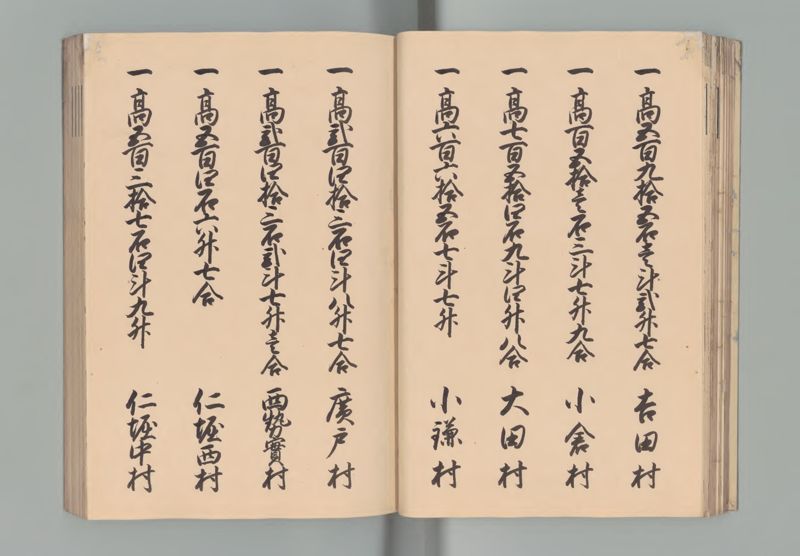 一 高五百九拾五石壱斗弐升七合 吉田村
一 高百五拾壱石三斗七升九合 小倉村
一 高七百五拾四石九斗四升八合 大田村
一 高六百六拾五石七斗七升 小鎌村
一 高弐百四拾三石四斗八升七合 廣戸村
一 高弐百四拾三石弐斗七升壱合 西勢實村
一 高五百四石六升七合 仁堀西村
一 高五百三拾七石四斗九升 仁堀中村